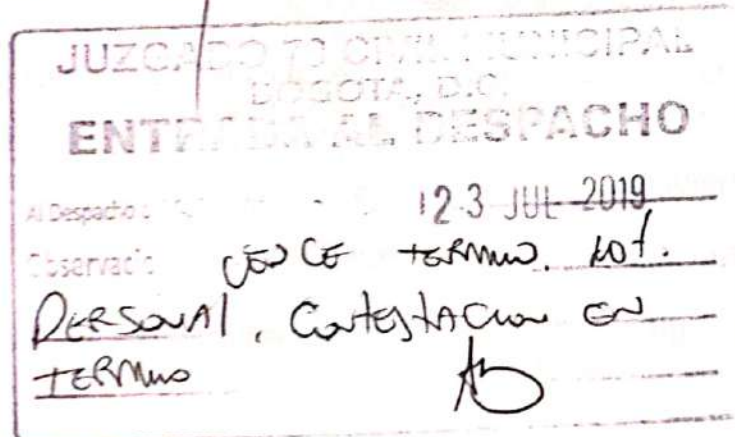 JUZGADO 70 CIVIL MUNICIPAL
BOGOTA, D.C.
ENTRADA AL DESPACHO
Al Despacho 23 JUL 2019
Observació VENCE TERMINO. Not.
PERSONAL, Contestacion EN
TERMINO